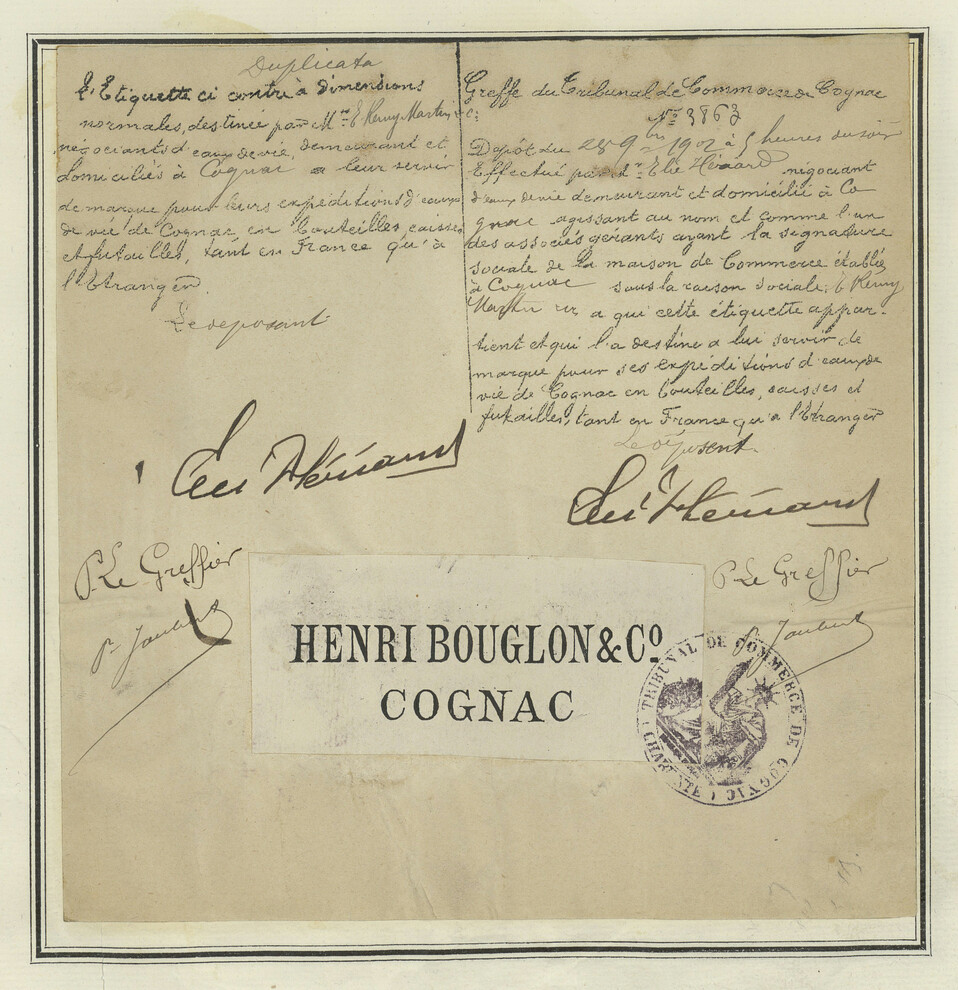 Duplicata
L'Etiquette ci contre à dimensions
normales, destinée par Mrs E. Remy Martin & C:
négociants d'eaux de vie, demeurant et
domiciliés à Cognac a leur servir
de marque pour leurs expéditions d'eaux
de vie de Cognac en bouteilles, caisses
et futailles, tant en France qu'à
l'Etranger.
Le déposant
Greffe du Tribunal de Commerce de Cognac
N° 3863
Dépôt du 28 9bre 1902 à 5 heures du soir
Effectué par Mr Elie Hériard négociant
d'eaux de vie demeurant et domicilié à Co
gnac agissant au nom et comme l'un
des associés gérants ayant la signature
sociale de la maison de Commerce établie
à Cognac sous la raison sociale, E Remy
Martin a qui cette étiquette appar-
tient et qui l'a destine a lui servir de
marque pour ses expéditions d'eaux de
vie de Cognac en bouteilles, caisses et
futailles, tant en France qu'a l'Etranger
Le déposent
P. Le Greffier
P. Le Greffier
HENRI BOUGLON & Co
COGNAC
TRIBUNAL DE COMMERCE DE COGNAC (CHARENTE)